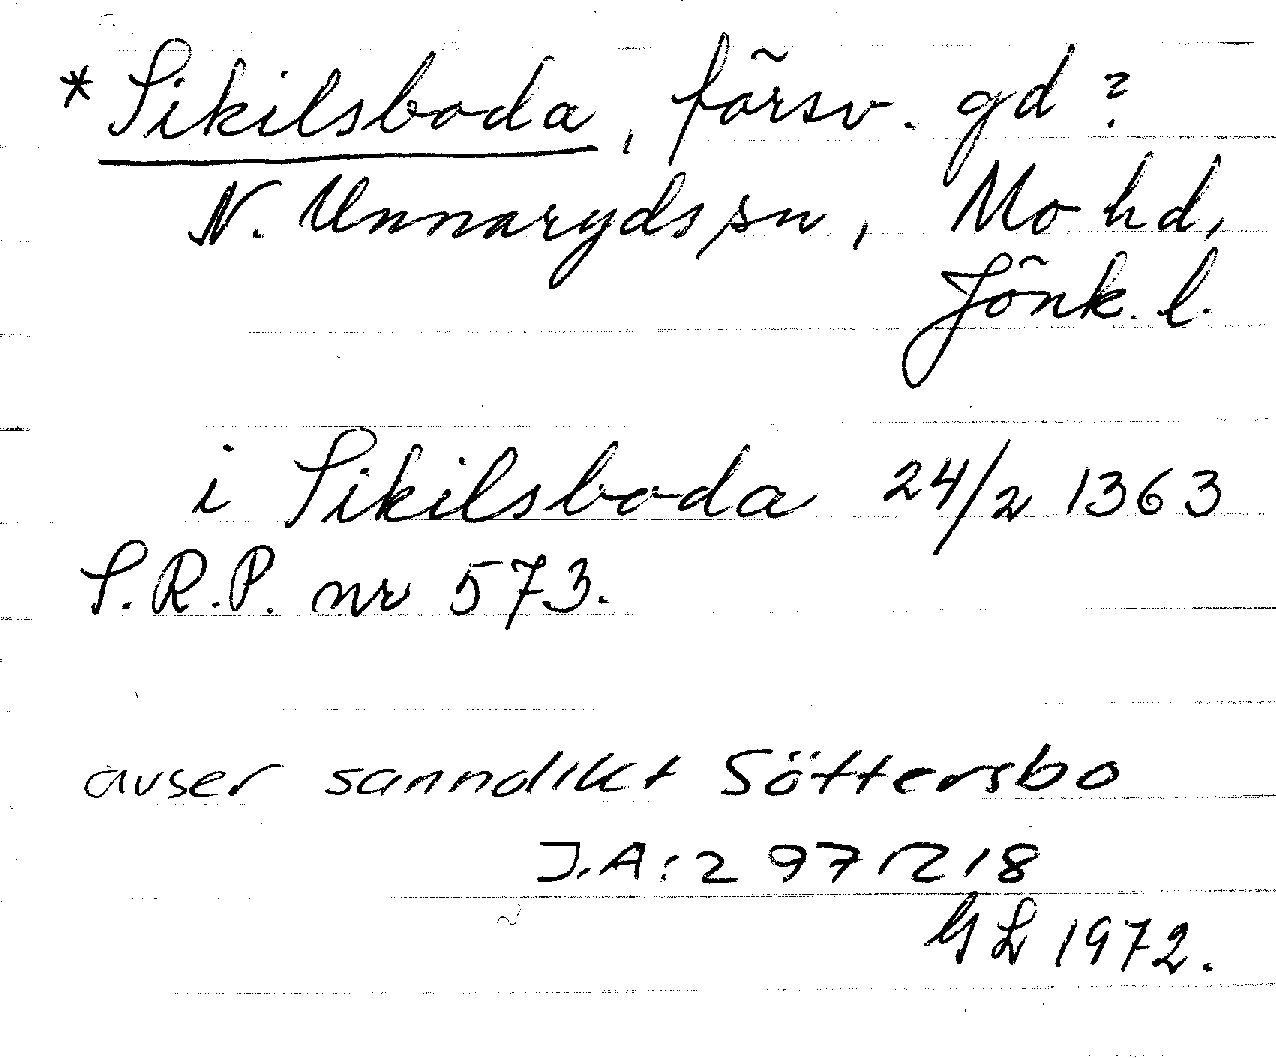 *Sikilsboda, försv. gd?
N. Unnaryds sn, Mo hd,
Jönk. l.
i Sikilsboda 24/2 1363
S.R.P. nr 573.
avser sannolikt Söttersbo
J.A:2 97
GL 1972.